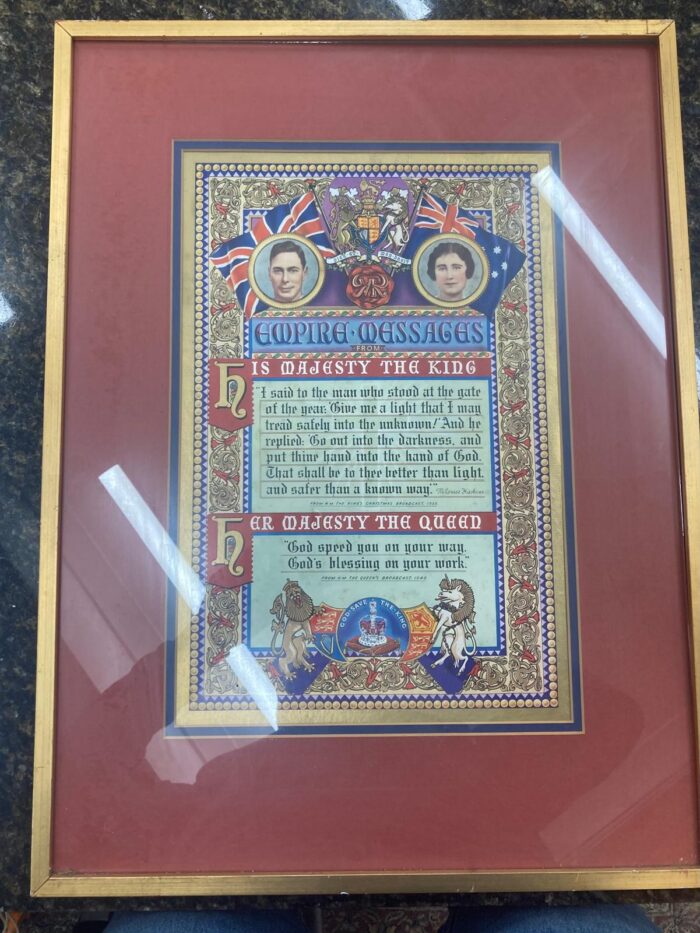 DIEU ET MON DROIT
EMPIRE · MESSAGES
FROM
HIS MAJESTY THE KING
"I said to the man who stood at the gate
of the year: 'Give me a light that I may
tread safely into the unknown!' And he
replied: 'Go out into the darkness, and
put thine hand into the hand of God.
That shall be to thee better than light,
and safer than a known way.'" M. Louise Haskins
FROM H·M THE KING'S CHRISTMAS BROADCAST, 1939
HER MAJESTY THE QUEEN
"God speed you on your way.
God's blessing on your work."
FROM H·M THE QUEEN'S BROADCAST, 1940
GOD·SAVE THE·KING